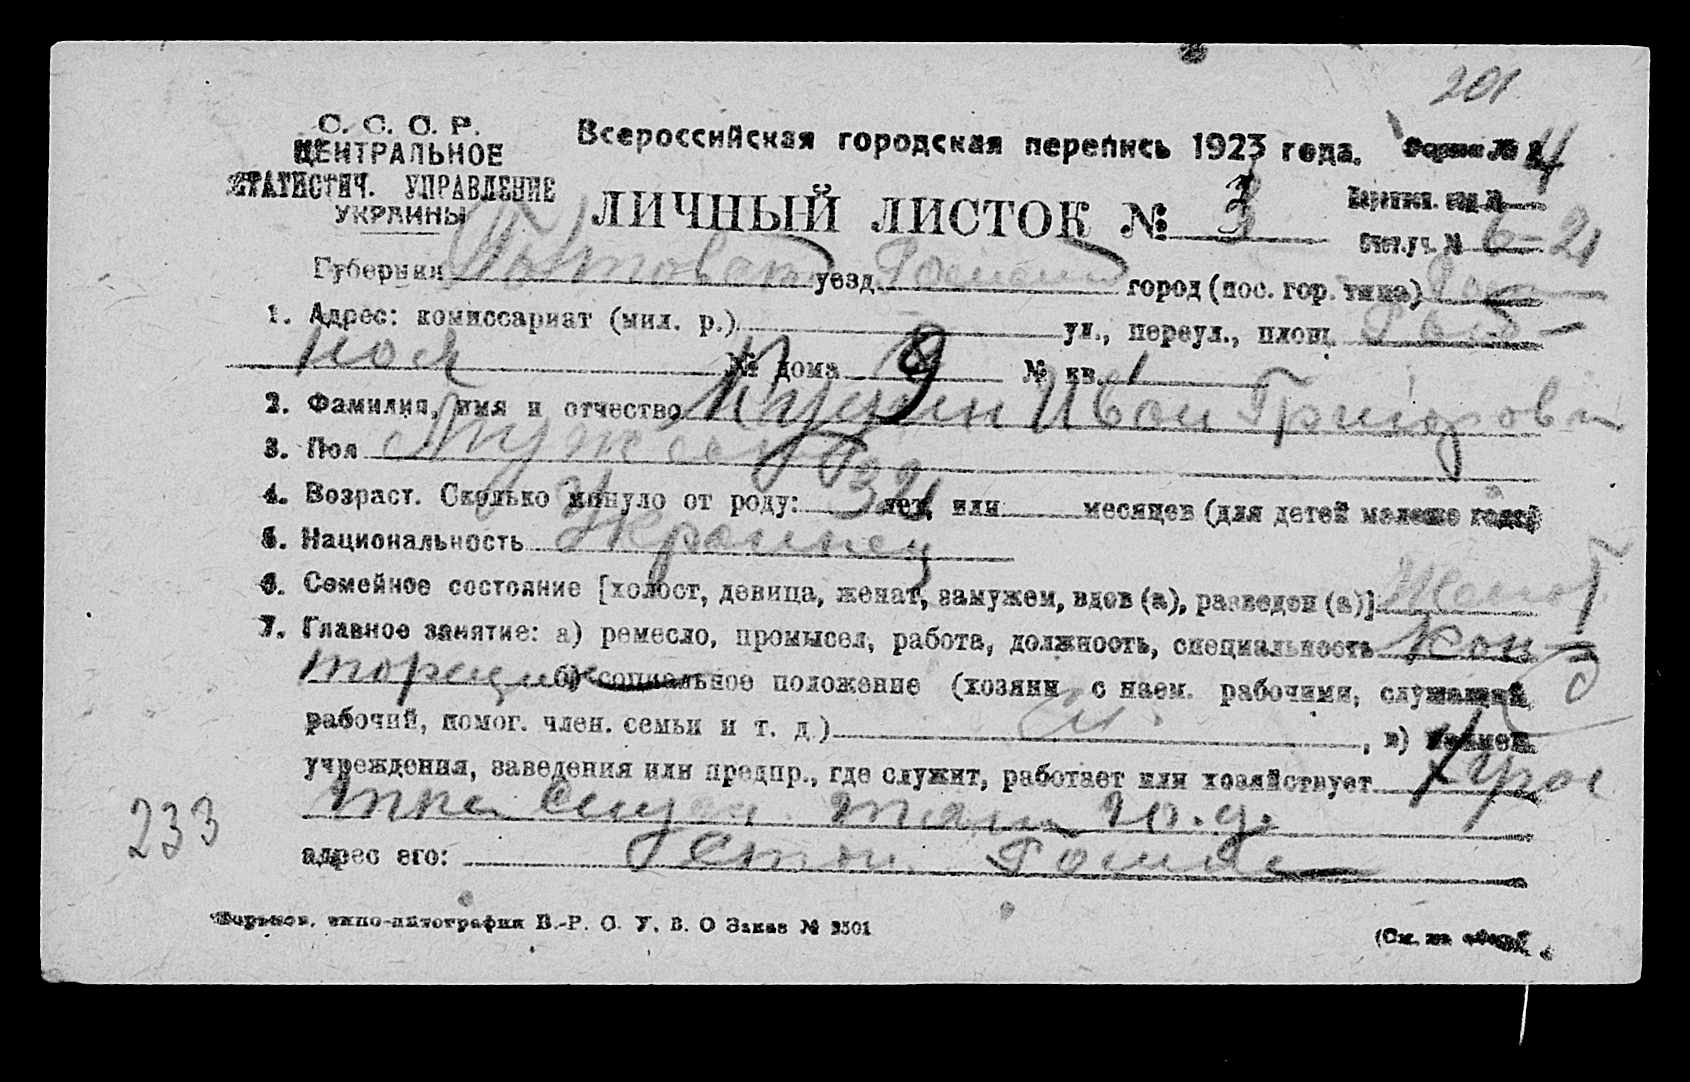 201
С. С. С. Р.
ЦЕНТРАЛЬНОЕ
СТАТИСТИЧ. УПРАВЛЕНИЕ
УКРАИНЫ
Всероссийская городская перепись 1923 года.
Форма № 4
ЛИЧНЫЙ ЛИСТОК № 3
Счет. уч. № 6-21
Губерния Полтовская уезд Роменский город (пос. гор. типа)
1. Адрес: комиссариат (мил. р.) ул., переул., площ.
ная № дома 9 № кв. 1
2. Фамилия, имя и отчество Иван Григорови
3. Пол Мужской
4. Возраст. Сколько минуло от роду: 32 лет, или месяцев (для детей моложе года)
5. Национальность Украинец
6. Семейное состояние [холост, девица, женат, замужем, вдов (а), разведен (а)] Женат
7. Главное занятие: а) ремесло, промысел, работа, должность, специальность кон-
торщик б) социальное положение (хозяин с наем. рабочими, служащий,
рабочий, помог. член. семьи и т. д.) , в) наимен.
учреждения, заведения или предпр., где служит, работает или хозяйствует
ю.д.
233
адрес его:
типо-литография В.-Р. С. У. В. О Заказ № 3501
(См. на обор.)